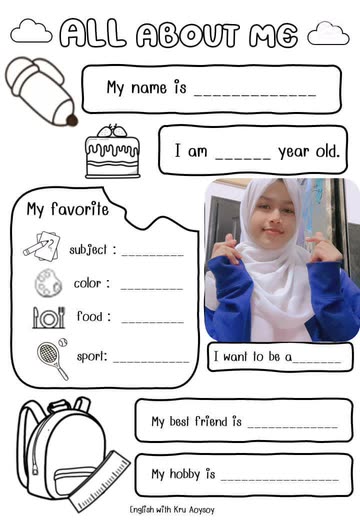 ALL ABOUT ME
My name is _____________
I am ______ year old.
My favorite
subject : __________
color : __________
food : __________
sport: ____________
I want to be a_______
My best friend is __________
My hobby is ______________
English with Kru Aoysoy